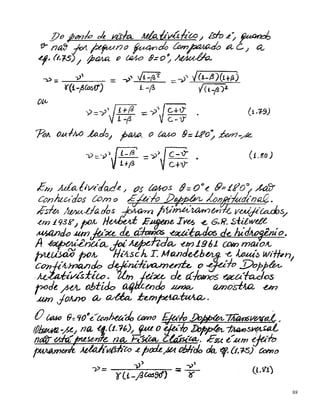 Do ponto de vista relativístico, isto é, quando
v não for pequeno quando comparado a c, a
eq. (1.75), para o caso θ=0°, resulta
ν = ν' / γ(1-βcosθ) = ν' √(1-β²) / 1-β = ν' √(1-β)(1+β) / √(1-β)²
ou
ν = ν' √(1+β / 1-β) = ν' √(c+v / c-v) . (1.79)
Por outro lado, para o caso θ=180°, tem-se
ν = ν' √(1-β / 1+β) = ν' √(c-v / c+v) . (1.80)
Em relatividade, os casos θ=0° e θ=180°, são
conhecidos como Efeito Doppler Longitudinal.
Estes resultados foram primeiramente verificados,
em 1938, por Herbert Eugene Ives e G.R. Stilwell
usando um feixe de átomos excitados de hidrogênio.
A experiência foi repetida em 1961 com maior
precisão por Hirsch I. Mandelberg e Louis Witten,
confirmando definitivamente o efeito Doppler
relativístico. Um feixe de átomos excitados
pode ser obtido aquecendo uma amostra em
um forno a alta temperatura.
O caso θ=90° é conhecido como Efeito Doppler Transversal.
Observa-se, na eq. (1.76), que o efeito Doppler transversal
não está presente na Física Clássica. Esse é um efeito
puramente relativístico e pode ser obtido da eq. (1.75) como
ν = ν' / γ(1-βcos90°) = ν' / γ (1.81)
88